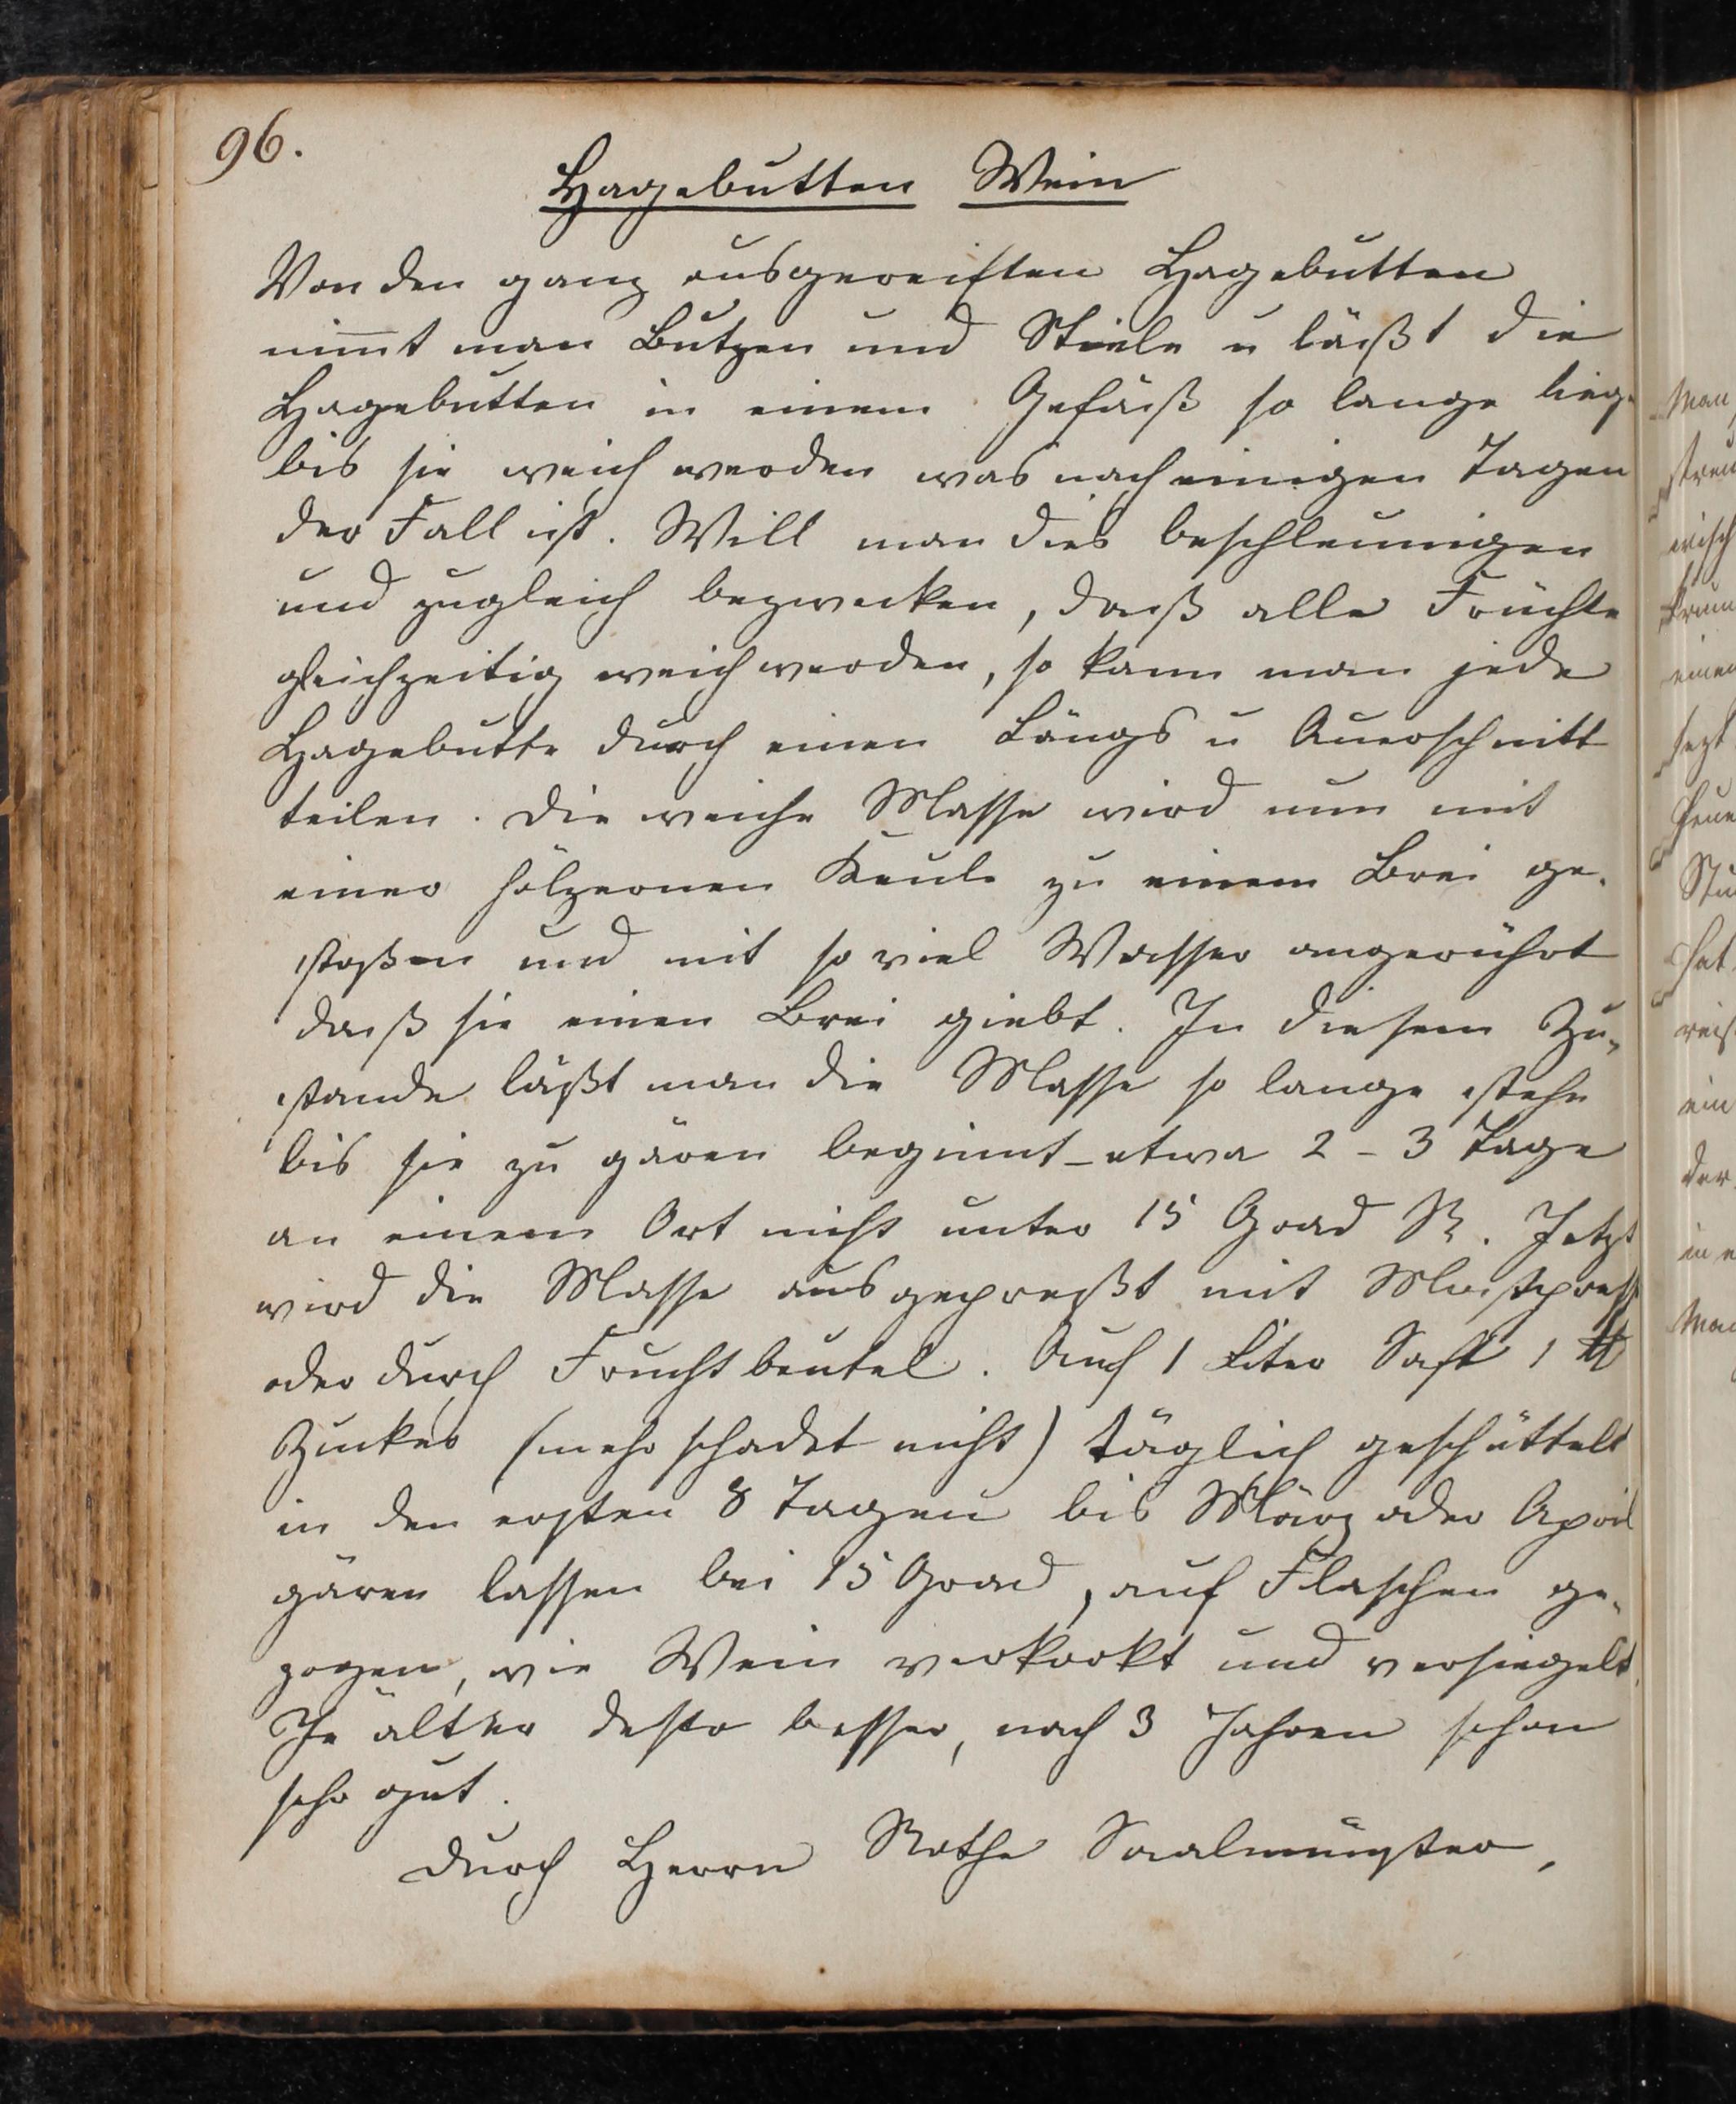 96.
Hagebutten Wein
Von den ganz ausgereiften Hagebutten
nim̅t man Butzen und Stiele u läßt die
Hagebutten in einem Gefäß so lange lieg.
bis sie weich werden was nach einigen Tagen
der Fall ist. Will man dies beschleunigen
und zugleich bezwecken, daß alle Früchte
gleichzeitig weich werden, so kann man jede
Hagebutte durch einen Längs u Querschnitt
teilen. Die weiche Masse wird nun mit
einer hölzernen Keule zu einem Brei ge-
stoßen und mit so viel Wasser angerührt
daß sie einen Brei giebt. In diesem Zu-
stande läßt man die Masse so lange stehn
bis sie zu gären beginnt - etwa 2 - 3 Tage
an einem Ort nicht unter 15 Grad R. Jetzt
wird die Masse ausgepreßt mit Mostpresse
oder durch Fruchtbeutel. Auf 1 Liter Saft 1 ℔
Zucker (mehr schadet nicht) täglich geschüttelt
in den ersten 8 Tagen bis März oder April
gären lassen bei 15 Grad, auf Flaschen ge-
zogen, wie Wein verkorkt und versiegelt.
Je älter desto besser, nach 3 Jahren schon
sehr gut.
Durch Herrn Rothe Saalmünster,